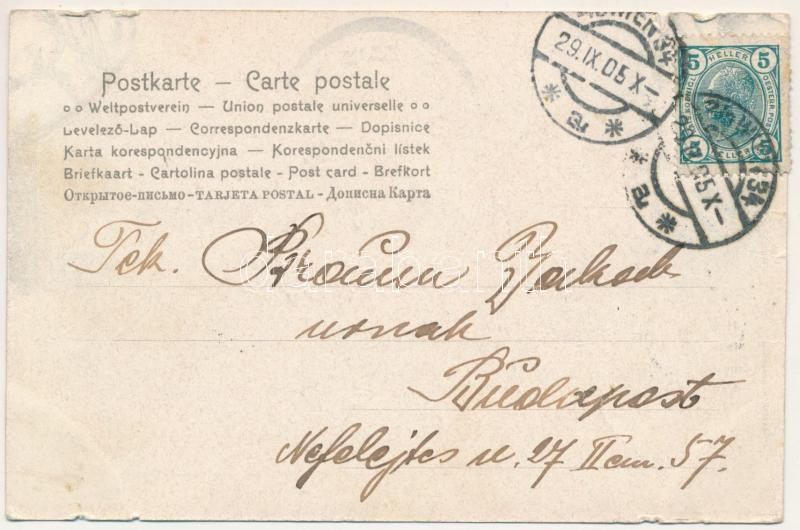 Postkarte – Carte postale
Weltpostverein — Union postale universelle
Levelező-Lap — Correspondenzkarte — Dopisnice
Karta korespondencyjna — Korespondenčni listek
Briefkaart - Cartolina postale - Post card - Brefkort
Открытое-письмо - TARJETA POSTAL - Дописна Карта
5 HELLER 5
WIEN 34
29.IX.05 X-
Tek. Braun Jakab
urnak
Budapest
Nefelejts u. 27 II em. 57.
darabanth